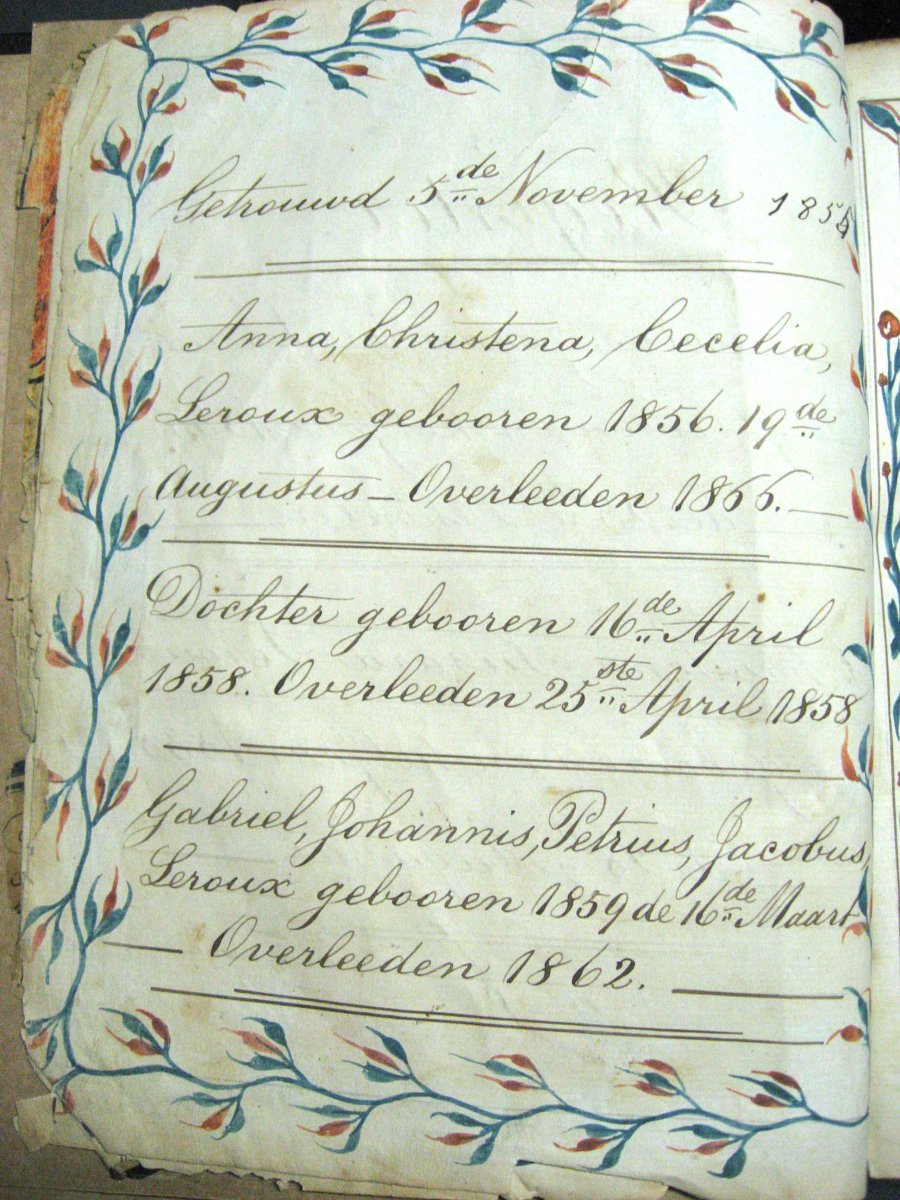 Getrouwd 5de November 1854
Anna, Christena, Cecelia,
Leroux gebooren 1856. 19de
Augustus – Overleeden 1866.
Dochter gebooren 16de April
1858. Overleeden 25ste April 1858
Gabriel, Johannis, Petrius, Jacobus,
Leroux gebooren 1859 de 16de Maart
Overleeden 1862.